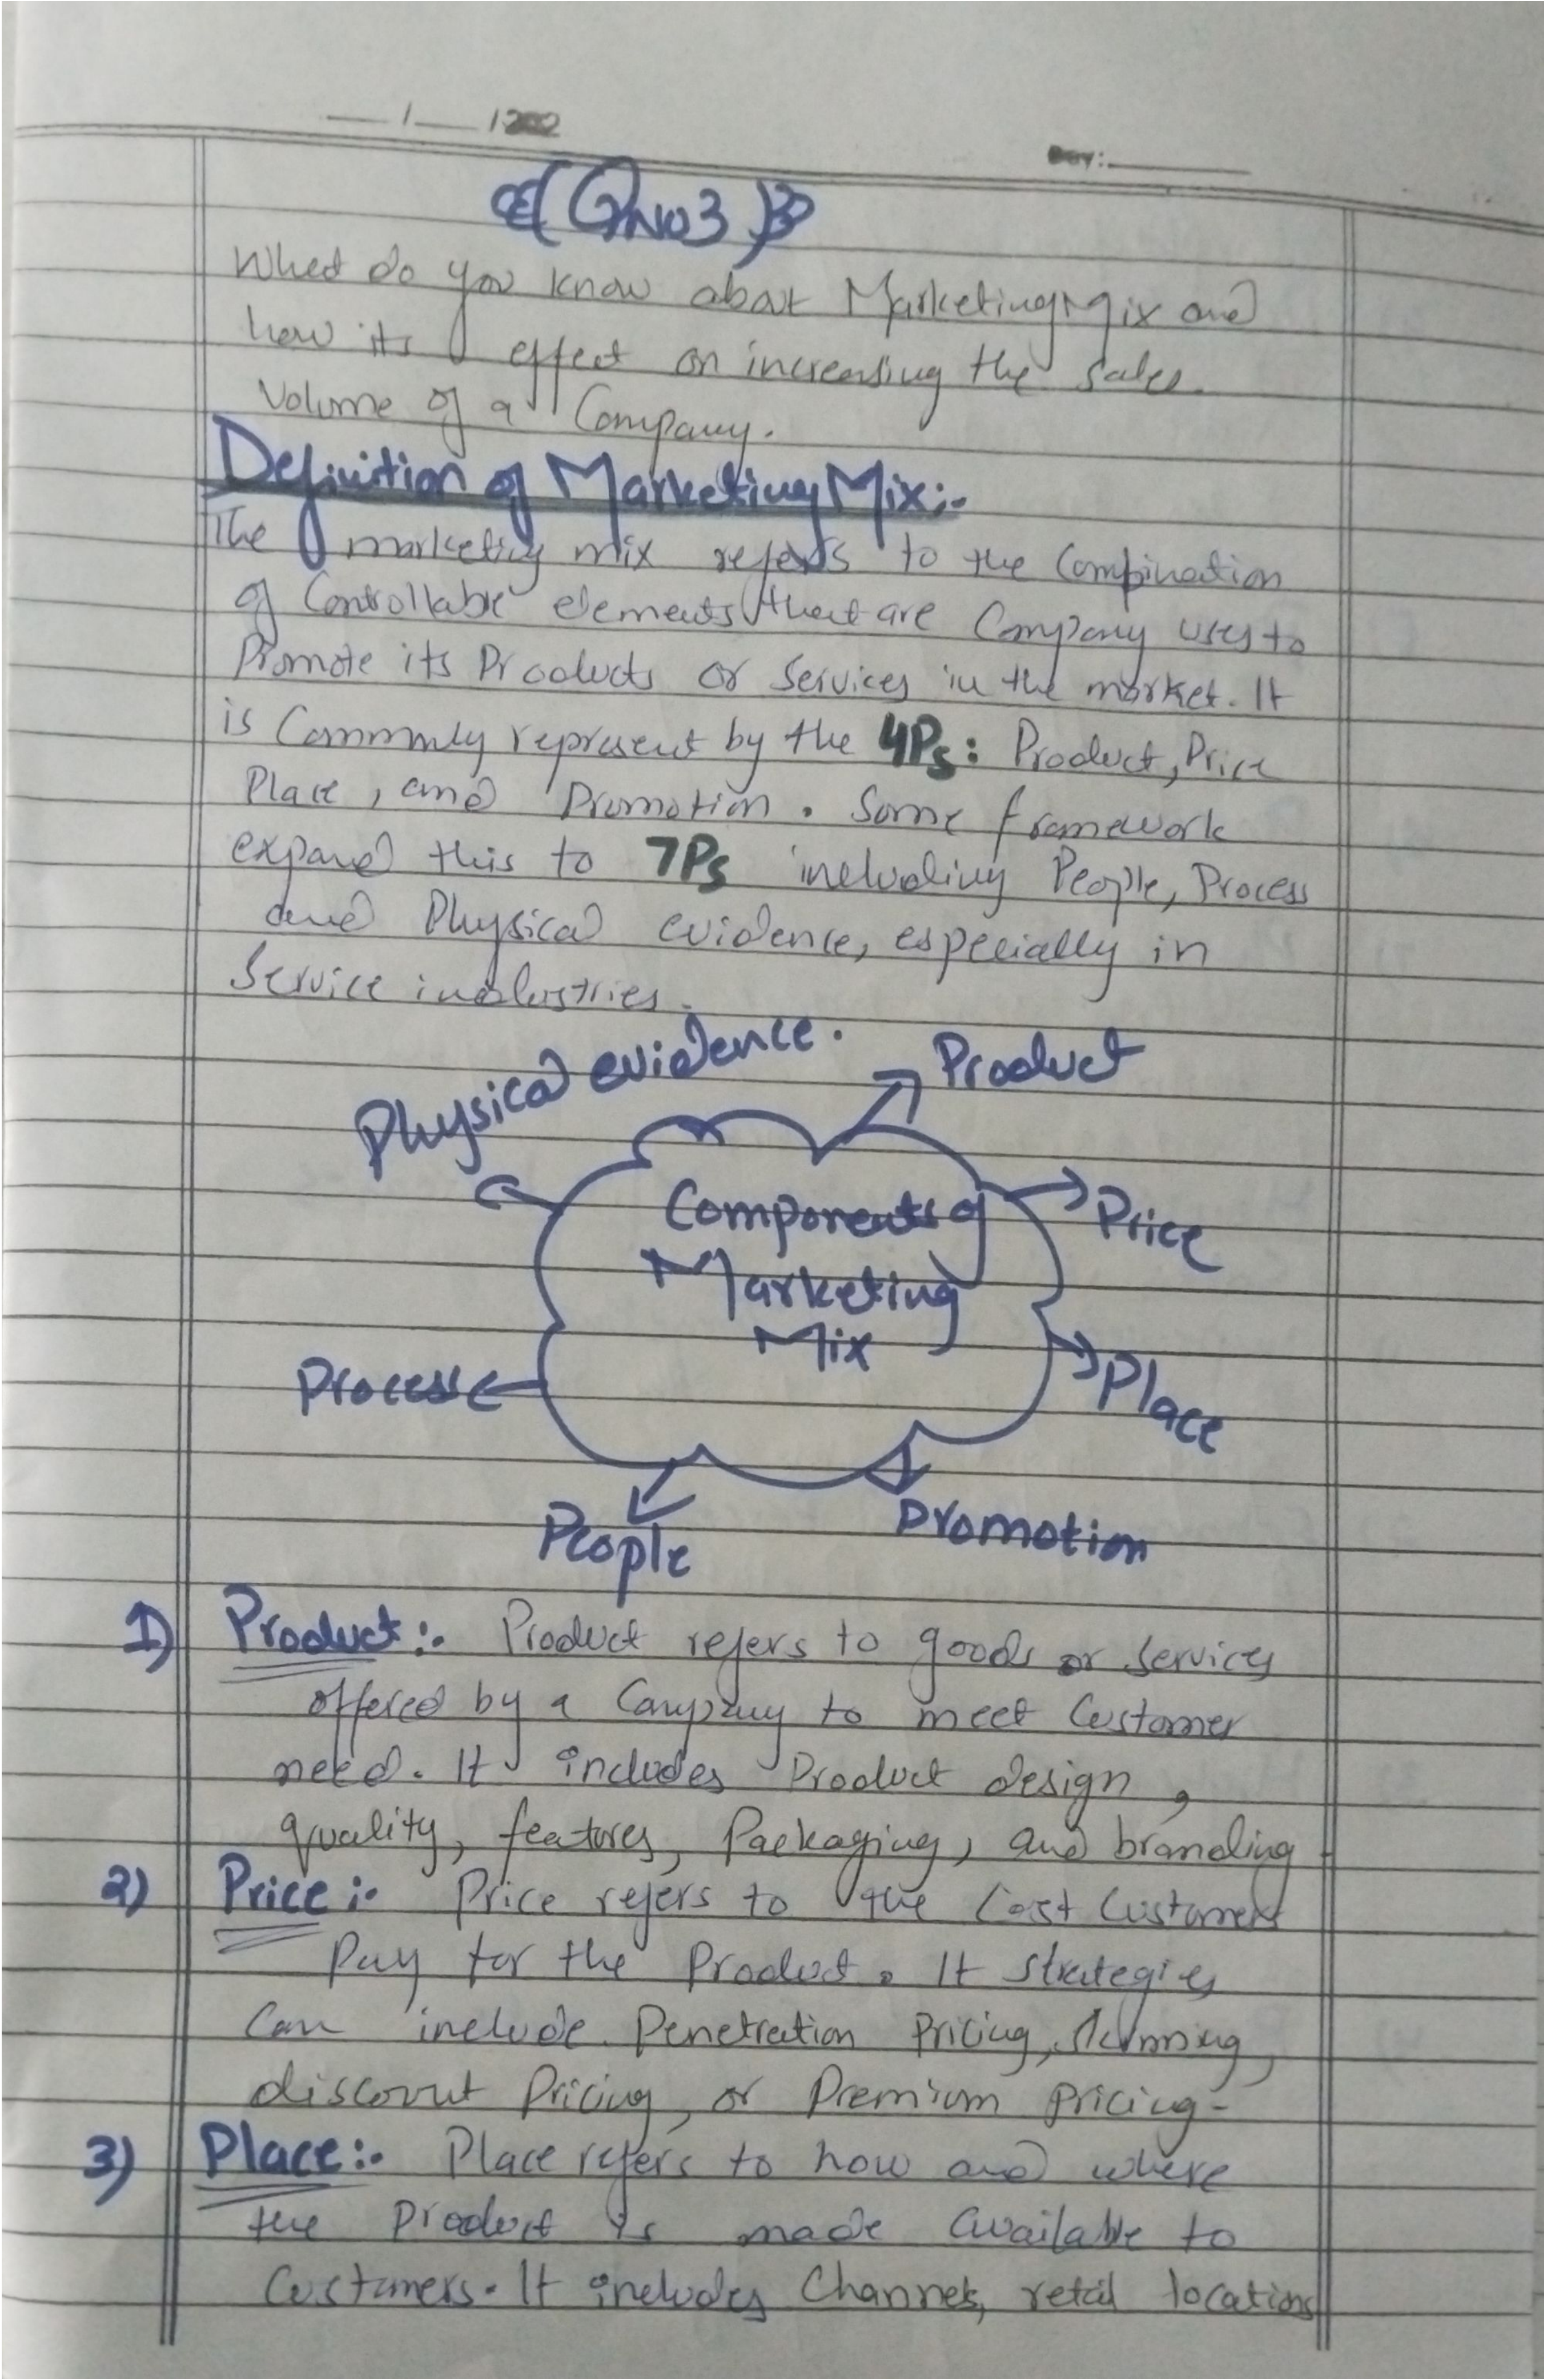 __/__/202
Day:____
(Qno3)
What do you know about Marketing Mix and
how its effect on increasing the sales.
Volume of a Company.
Definition of Marketing Mix:-
The marketing mix refers to the Combination
of Controllable elements that are Company uses to
Promote its Products or Services in the market. It
is Commonly represent by the 4Ps: Product, Price
Place, and Promotion. Some framework
expand this to 7Ps including People, Process
and Physical evidence, especially in
Service industries.
Physical evidence.
Product
Components of
Price
Marketing
Mix
Process
Place
People
Promotion
1) Product:- Product refers to goods or services
offered by a Company to meet Customer
need. It includes Product design,
quality, features, Packaging, and branding
2) Price:- Price refers to the Cost Customers
Pay for the Product. It strategies
Can include Penetration Pricing,
discount Pricing, or Premium pricing-
3) Place:- Place refers to how and where
the product is made available to
Customers. It includes Channels, retail locations